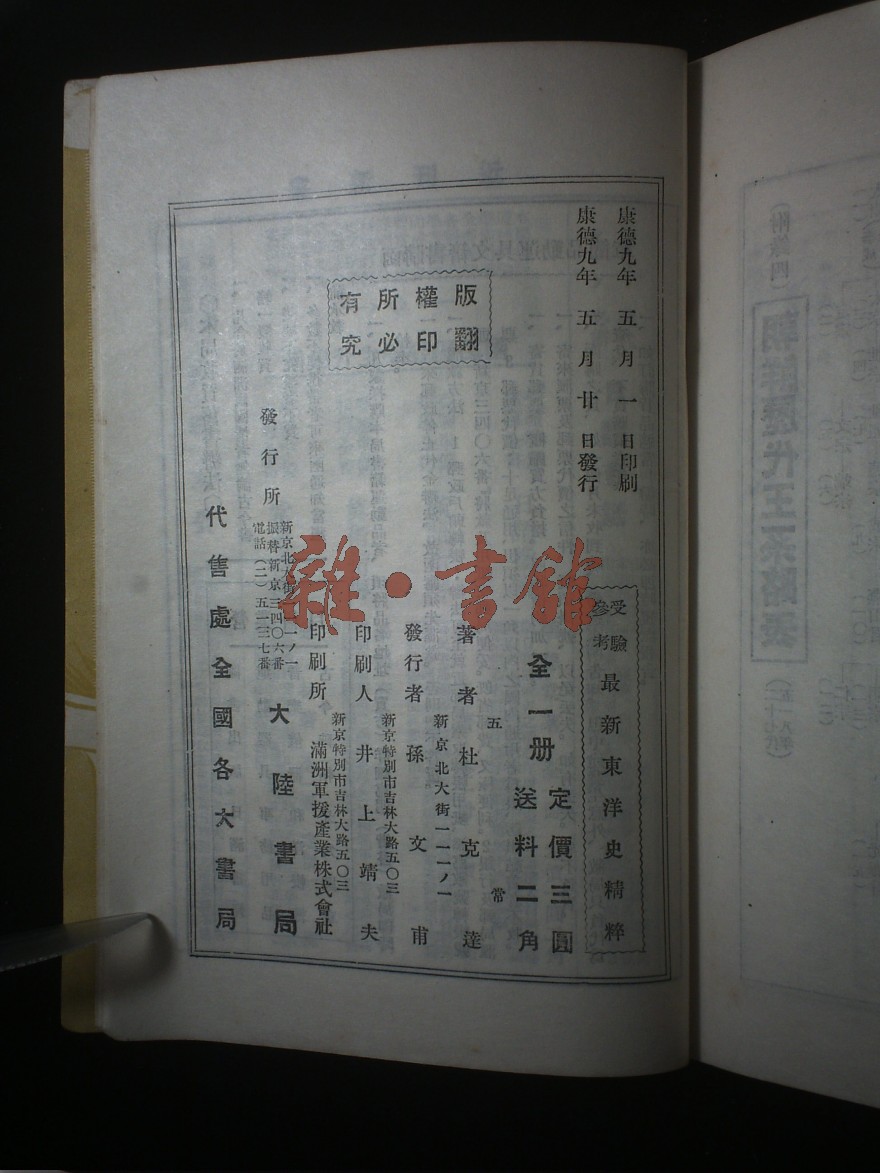 康德九年五月一日印刷
康德九年五月廿日發行
版權所有
翻印必究
受驗參考 最新東洋史精粹
定價三圓
全一册 送料二角
五常
著者 杜克達
新京北大街一一一ノ一
發行者 孫文甫
新京特別市吉林大路五〇三
印刷人 井上靖夫
新京特別市吉林大路五〇三
印刷所 滿洲軍援產業株式會社
發行所
新京北大街一一一ノ一
振替新京三四〇六番
電話(二)五一三七番
大陸書局
代售處 全國各大書局
雜·書館
(附錄四)